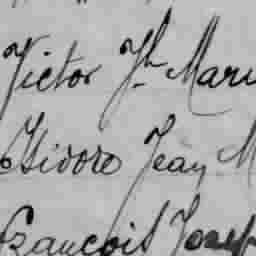 Victor Jh Mari
Isidore Jean M
François Josep